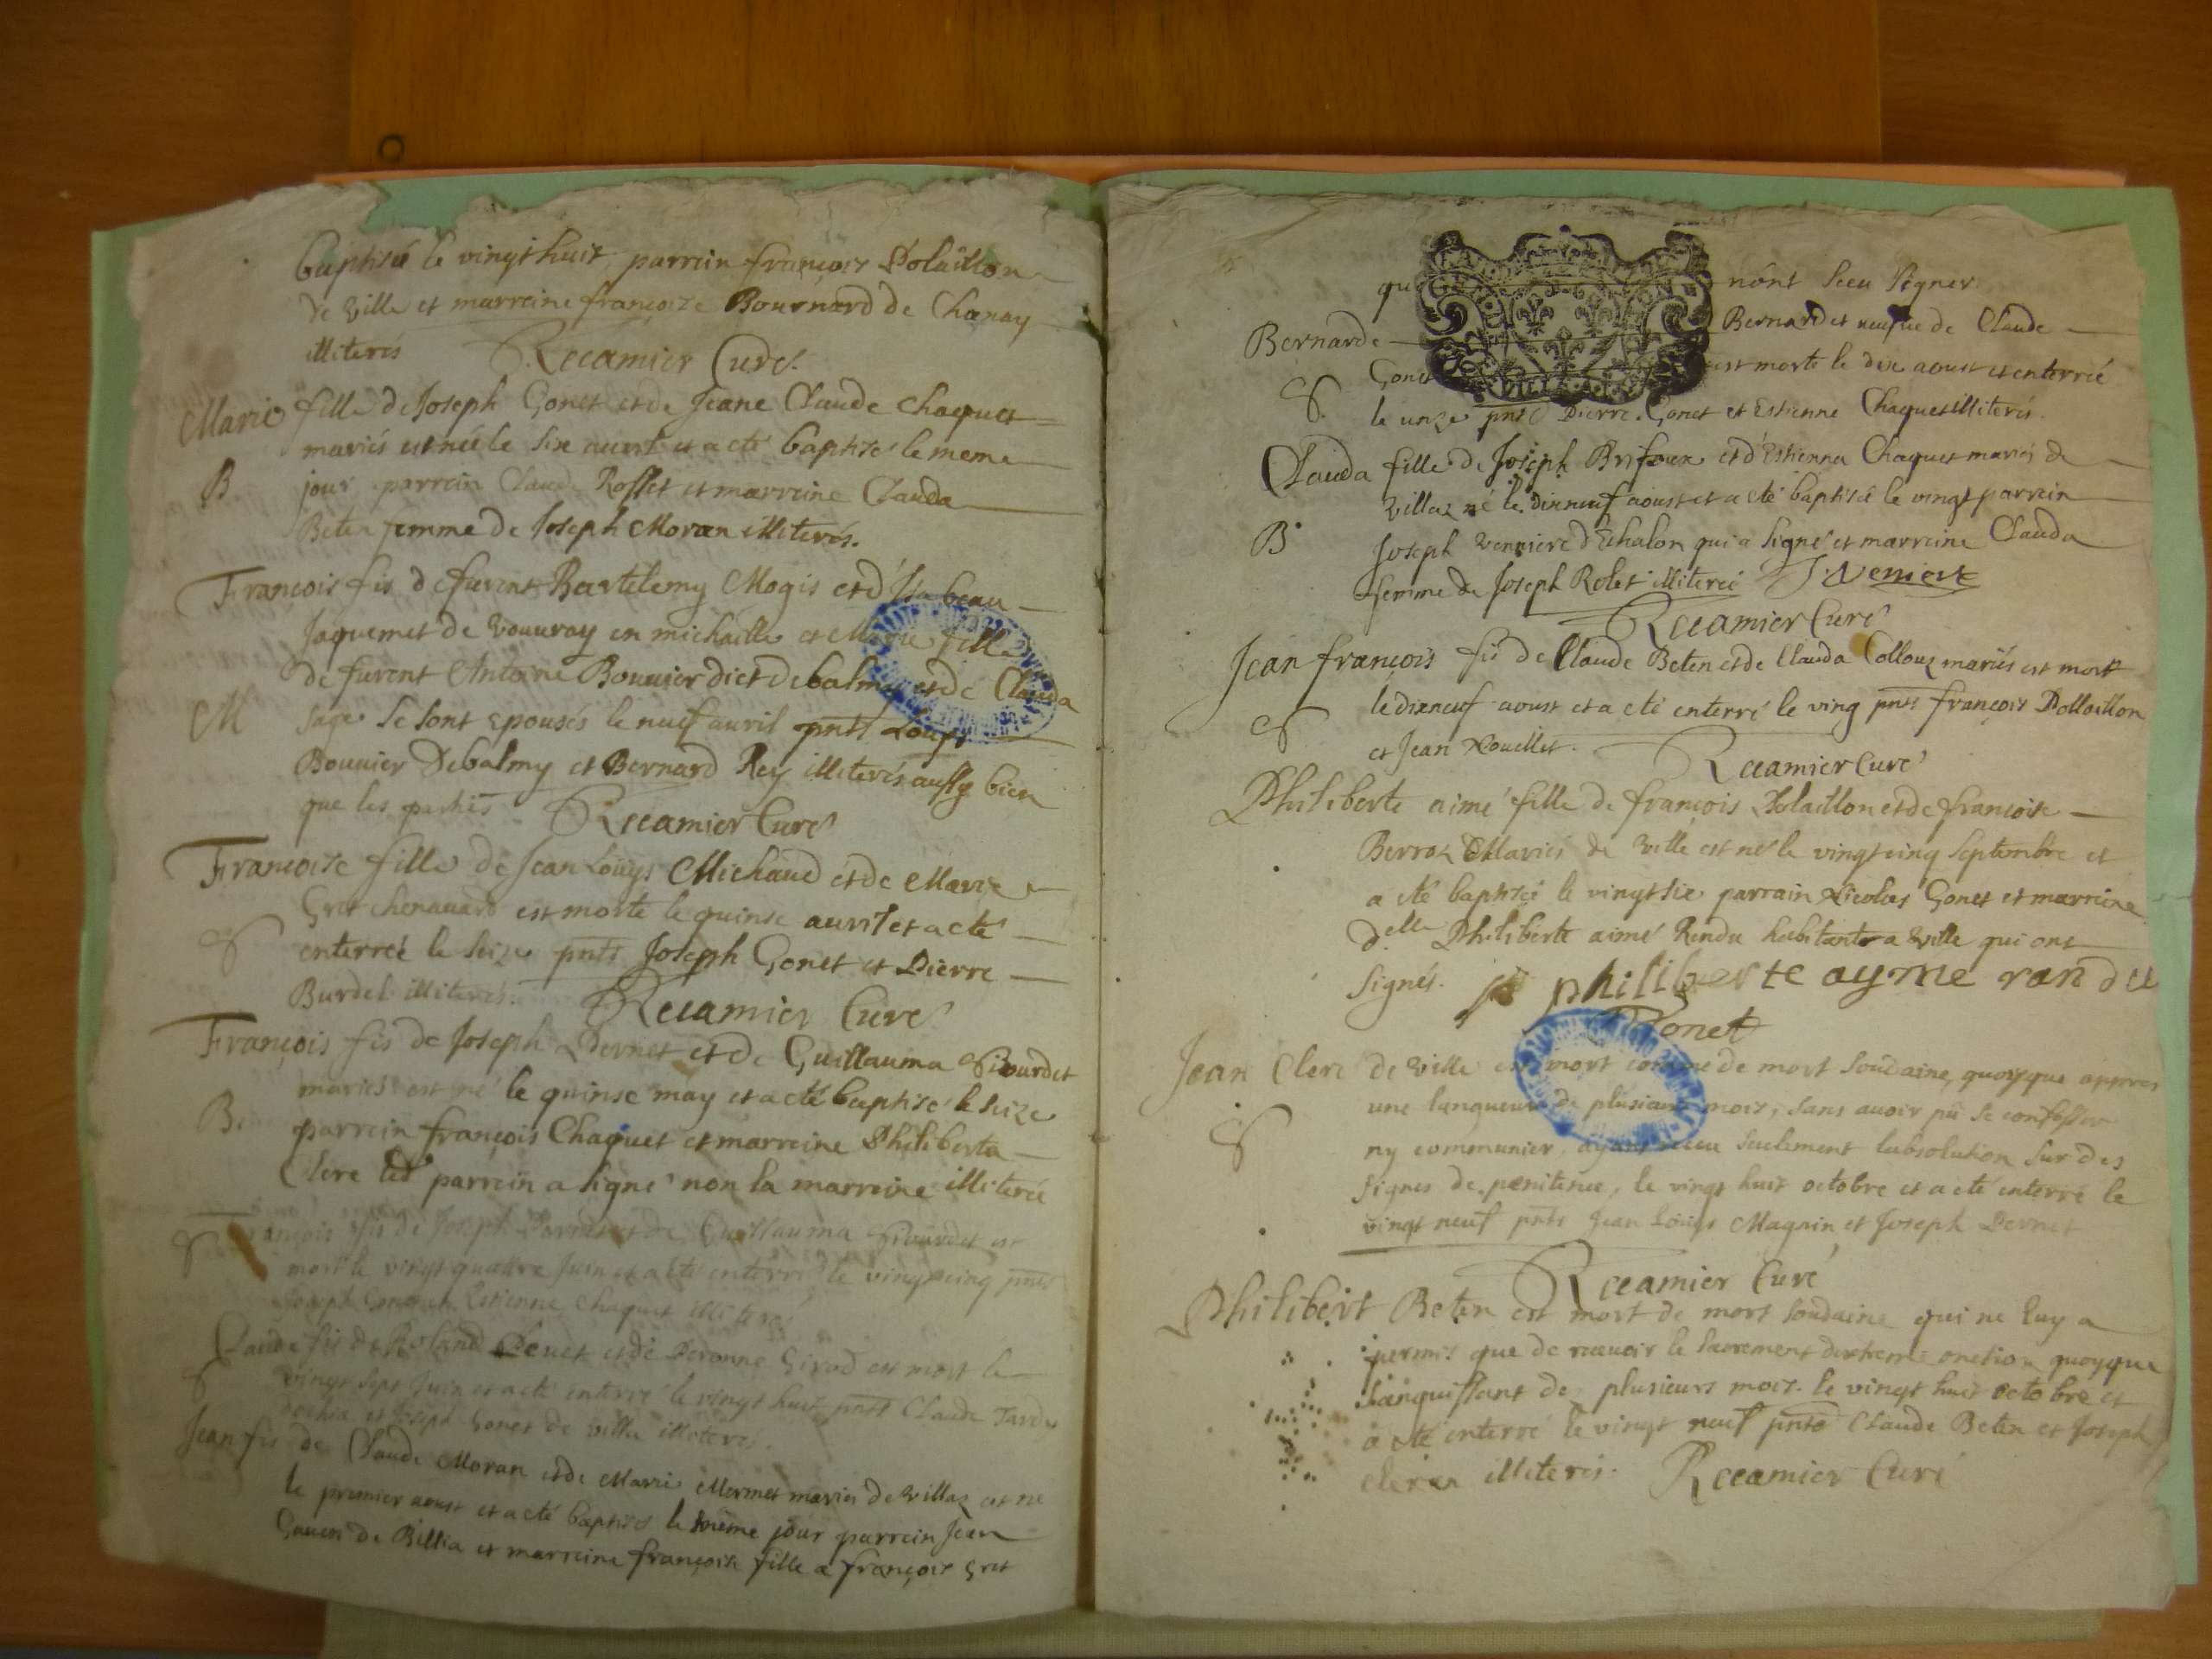 baptisé le vingt huit parrein françois Polaillon
de ville et marreine françoize Bournard de Chanay
illiterés Recamier Curé.
Marie fille de Joseph Gonet et de Jeane Claude Chaquet
mariés est née le six avert et a eté baptisé le meme
B jour parrein Claude Rosset et marreine Clauda
Beten femme de Joseph Moran illiterés.
François fis de furent Bartelemy Mogis et d'Isabeau
Jaquemet de vouuray en michaille et Marie fille
de furent Antoine Bouuier dict Debalmy et de Clauda
M sage se sont epousés le neuf auril pnts Louys
Bouuier Debalmy et Bernard Rey illiterés aussy bien
que les parties Recamier Curé
Françoise fille de Jean Louys Michaud et de Marie
Gret chenauard est morte le quinse auril et a eté
S enterreé le seize pnts Joseph Gonet et Pierre
Burdet illiterés. Recamier Curé
François fis de Joseph Pernet et de Guillauma Bourdet
mariés est né le quinse may et a eté baptisé le seize
B parrein françois Chaquet et marreine Philiberta
Clere led parrein a signé non la marreine illiterée
S François fis de Joseph Pernet et de Guillauma est
mort le vingt quattre Juin et a eté enterré le vingt cinq pnts
Joseph Estienne Chaquet illiterés
Claude fis de Roland et de Peronne Girod est mort le
S vingt sept Juin et a eté enterré le vingt huit pnts Claude Tardy
et Joseph Gonet de ville illiterés.
Jean fis de Claude Moran et de Marie Mermet mariés de villaz est né
le premier aoust et a eté baptisé le même jour parrein Jean
de Billia et marreine françoise fille a françois Gret
qui nônt sceu signer
Bernarde Bernard et neufue de Claude
Gonet est morte le dix aoust et enterrée
S. le unze pnts Pierre Gonet et Estienne Chaquet illiterés.
Clauda fille de Joseph Brifoux et d'Estienna Chaquet mariés de
villaz né le dixneuf aoust et a eté baptisée le vingt parrein
B Joseph vernniere d'Echalon qui a signé et marreine Clauda
femme de Joseph Rolet illiterée J. Veniere
Recamier Curé
Jean françois fis de Claude Beten et de Clauda Collouz mariés est mort
le dixneuf aoust et a eté enterré le ving pnts françois Pollaillon
S et Jean Nouellet. Recamier Curé
Philiberte aimé fille de françois Polaillon et de françoise
Berroz Mariés de ville est né le vingt cinq Septembre et
a eté baptisée le vingt six parrain Nicolas Gonet et marreine
d.elle Philiberte aimé Rendu habitante a ville qui ont
signés. philiberte ayme randu
Gonet
Jean Clerc de ville est mort comme de mort soudaine, quoyque apprés
une langueur de plusieurs mois, sans auoir pû se confesser
S ny communier, ayant receu seulement labsolution sur des
signes de pænitence, le vingt huit octobre et a eté enterré le
vingt neuf pnts Jean Louys Magnin et Joseph Pernet
Recamier Curé
Philibert Beten est mort de mort soudaine qui ne luy a
permis que de receuoir le sacrement dextreme onction quoyque
languissant de plusieurs mois. le vingt huit octobre et
a eté enterré le vingt neuf pnts Claude Beten et Joseph
illiterés. Recamier Curé